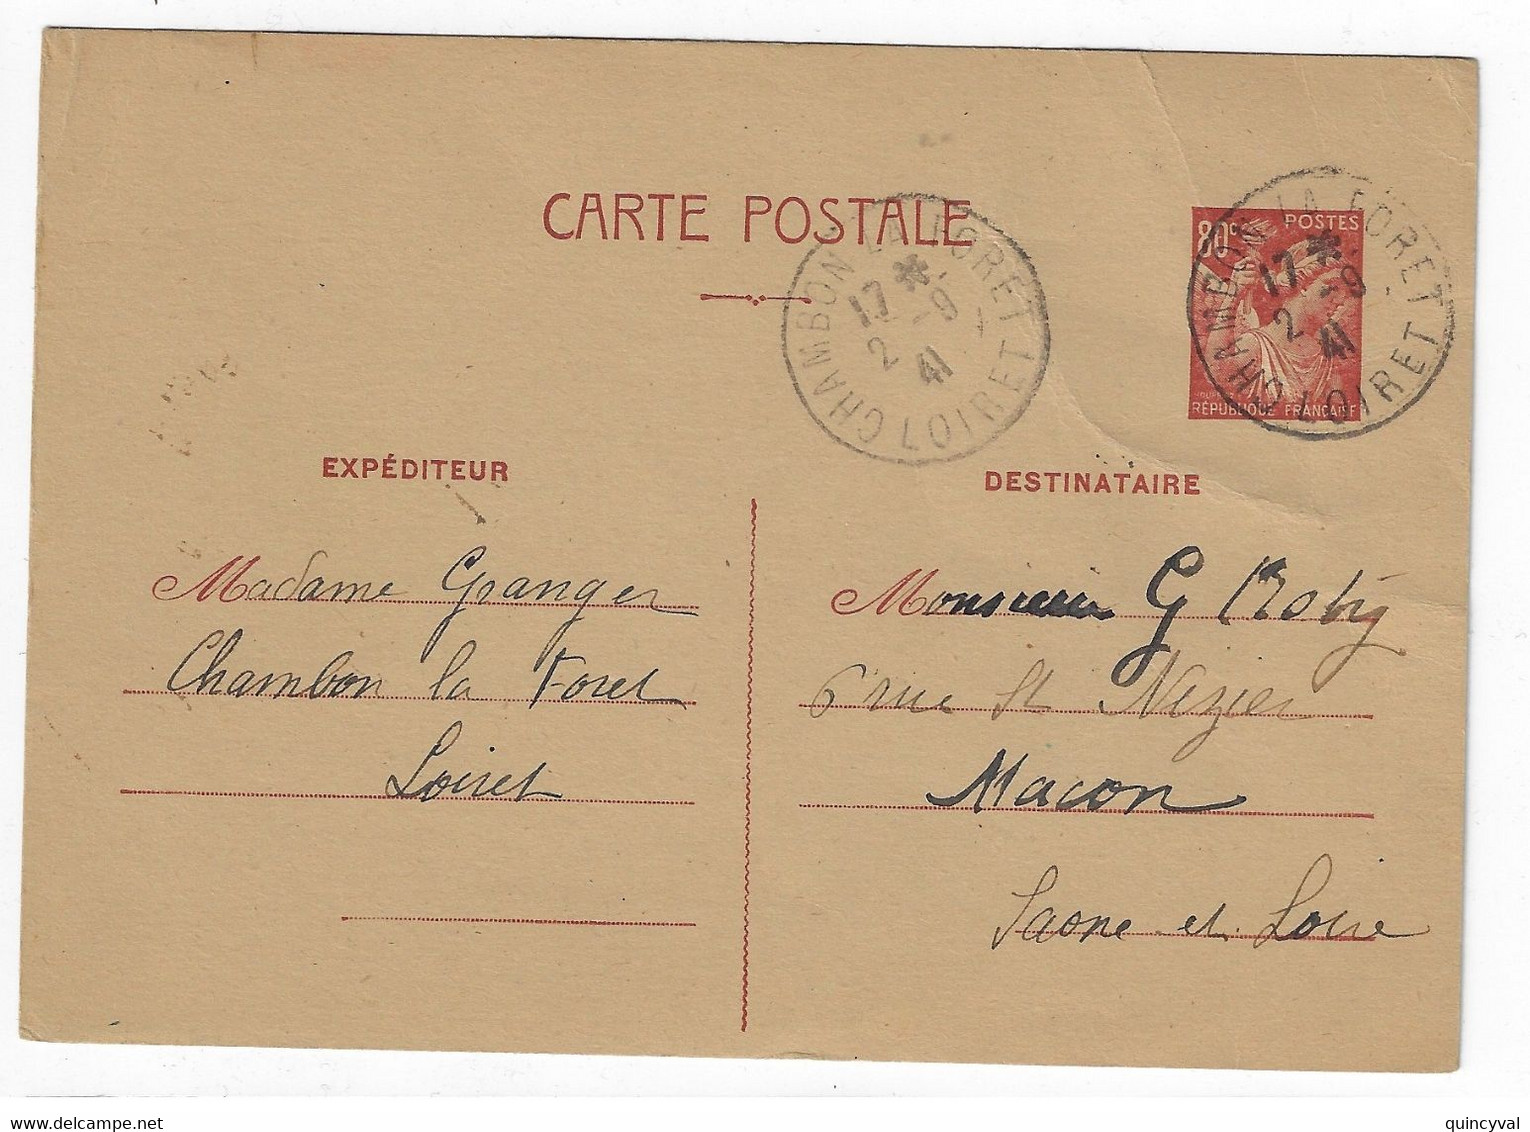 CARTE POSTALE
80c POSTES
RÉPUBLIQUE FRANÇAISE
CHAMBON LA FORET
17 *
2 -9
41
LOIRET
CHAMBON LA FORET
17 *
2 -9
41
LOIRET
EXPÉDITEUR
Madame Granger
Chambon la Foret
Loiret
DESTINATAIRE
Monsieur G
6 rue St Nizier
Macon
Saone et Loire
quincyval